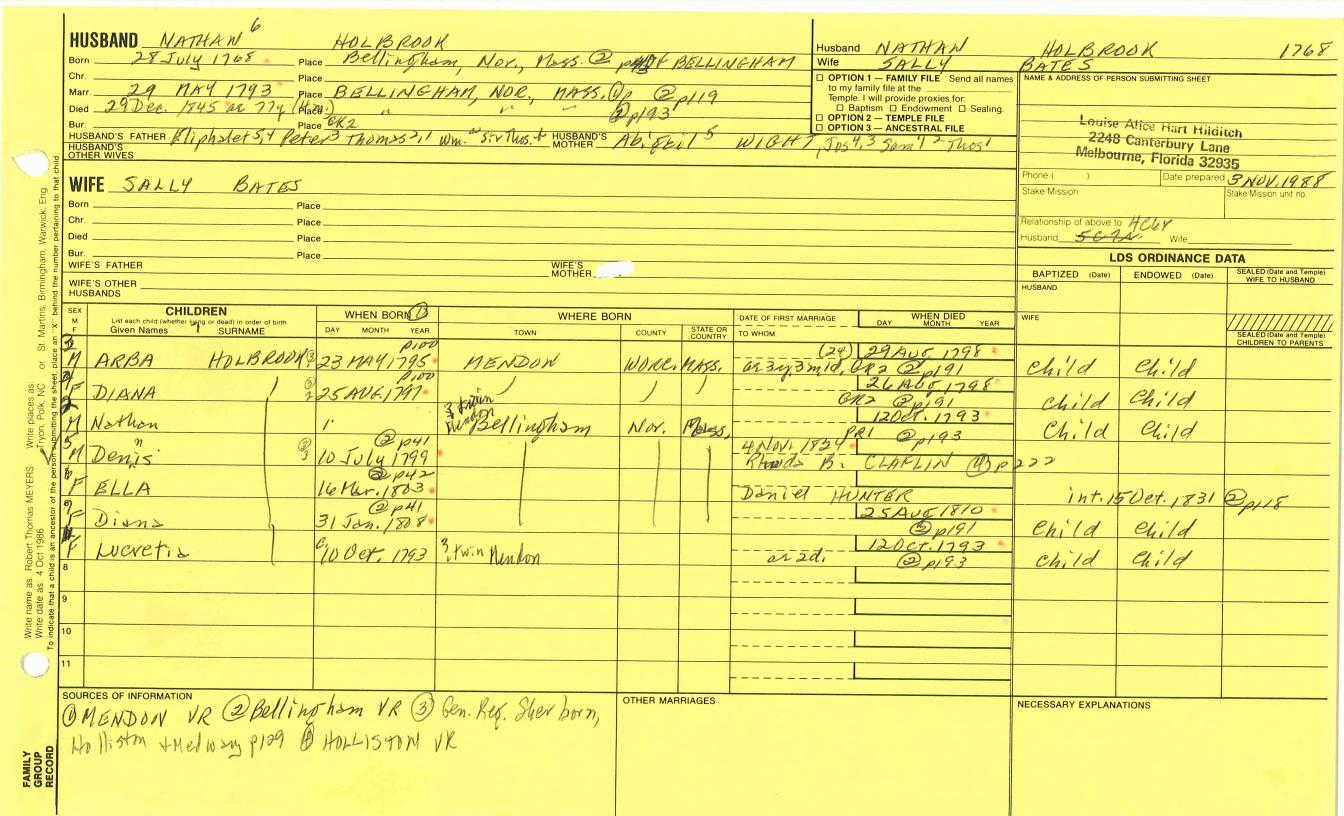 HUSBAND NATHAN 6 HOLBROOK
Born 28 July 1768 Place Bellingham, Nor., Mass. ② BELLINGHAM
Chr. Place
Marr. 29 MAY 1793 Place BELLINGHAM, NOR, MASS. ① ② p119
Died 29 Dec. 1845 ae 77y Place " " " ② p193
Bur. Place GR2
HUSBAND'S FATHER Eliphalet 5,4 Peter 3 Thomas 2,1 Wm. Sir Thos. HUSBAND'S MOTHER Abigail 5 WIGHT, Jos 4,3 Sam'l 2 Thos 1
HUSBAND'S OTHER WIVES
Husband NATHAN HOLBROOK 1768
Wife SALLY BATES
☐ OPTION 1 — FAMILY FILE Send all names
to my family file at the
Temple. I will provide proxies for:
☐ Baptism ☐ Endowment ☐ Sealing.
☐ OPTION 2 — TEMPLE FILE
☐ OPTION 3 — ANCESTRAL FILE
NAME & ADDRESS OF PERSON SUBMITTING SHEET
Louise Alice Hart Hilditch
2248 Canterbury Lane
Melbourne, Florida 32935
Phone ( ) Date prepared 3 NOV. 1988
Stake Mission Stake Mission unit no.
Relationship of above to
Husband Wife
WIFE SALLY BATES
Born Place
Chr. Place
Died Place
Bur. Place
WIFE'S FATHER WIFE'S MOTHER
WIFE'S OTHER HUSBANDS
LDS ORDINANCE DATA
BAPTIZED (Date) ENDOWED (Date) SEALED (Date and Temple) WIFE TO HUSBAND
HUSBAND
WIFE
SEALED (Date and Temple) CHILDREN TO PARENTS
SEX M F CHILDREN WHEN BORN ① WHERE BORN DATE OF FIRST MARRIAGE WHEN DIED
List each child (whether living or dead) in order of birth
Given Names SURNAME DAY MONTH YEAR TOWN COUNTY STATE OR COUNTRY TO WHOM DAY MONTH YEAR
3 p100 (24) 29 AUG 1798
M ARBA HOLBROOK 23 MAY 1795 MENDON WORC. MASS. ae 3y 3m 1d, GR2 ② p191 Child Child
p100 26 AUG. 1798
F DIANA 25 AUG. 1797 GR2 ② p191 Child Child
2 3, twin Mendon 12 Oct. 1793
M Nathan " Bellingham Nor. Mass. PR1 ② p193 Child Child
5 ② p41 4 Nov. 1834
M Dennis 10 July 1799 Rhoda B. CLAFLIN ④ p222
6 ② p42
F ELLA 16 Mar. 1803 Daniel HUNTER int. 15 Oct. 1831 ② p118
② p41 25 AUG 1810
F Diana 31 Jan. 1808 ② p191 Child Child
12 Oct. 1793
F Lucretia c. 10 Oct. 1793 3, twin Mendon ae 2d. ② p193 Child Child
8
9
10
11
SOURCES OF INFORMATION
① MENDON VR ② Bellingham VR ③ Gen. Reg. Sherborn,
Holliston + Medway p129 ④ HOLLISTON VR
OTHER MARRIAGES
NECESSARY EXPLANATIONS
Write name as: Robert Thomas MEYERS Write places as:
Write date as: 4 Oct 1986 Tryon, Polk, NC or St Martins, Birmingham, Warwick, Eng.
To indicate that a child is an ancestor of the person submitting the sheet, place an "X" behind the number pertaining to that child
FAMILY
GROUP
RECORD